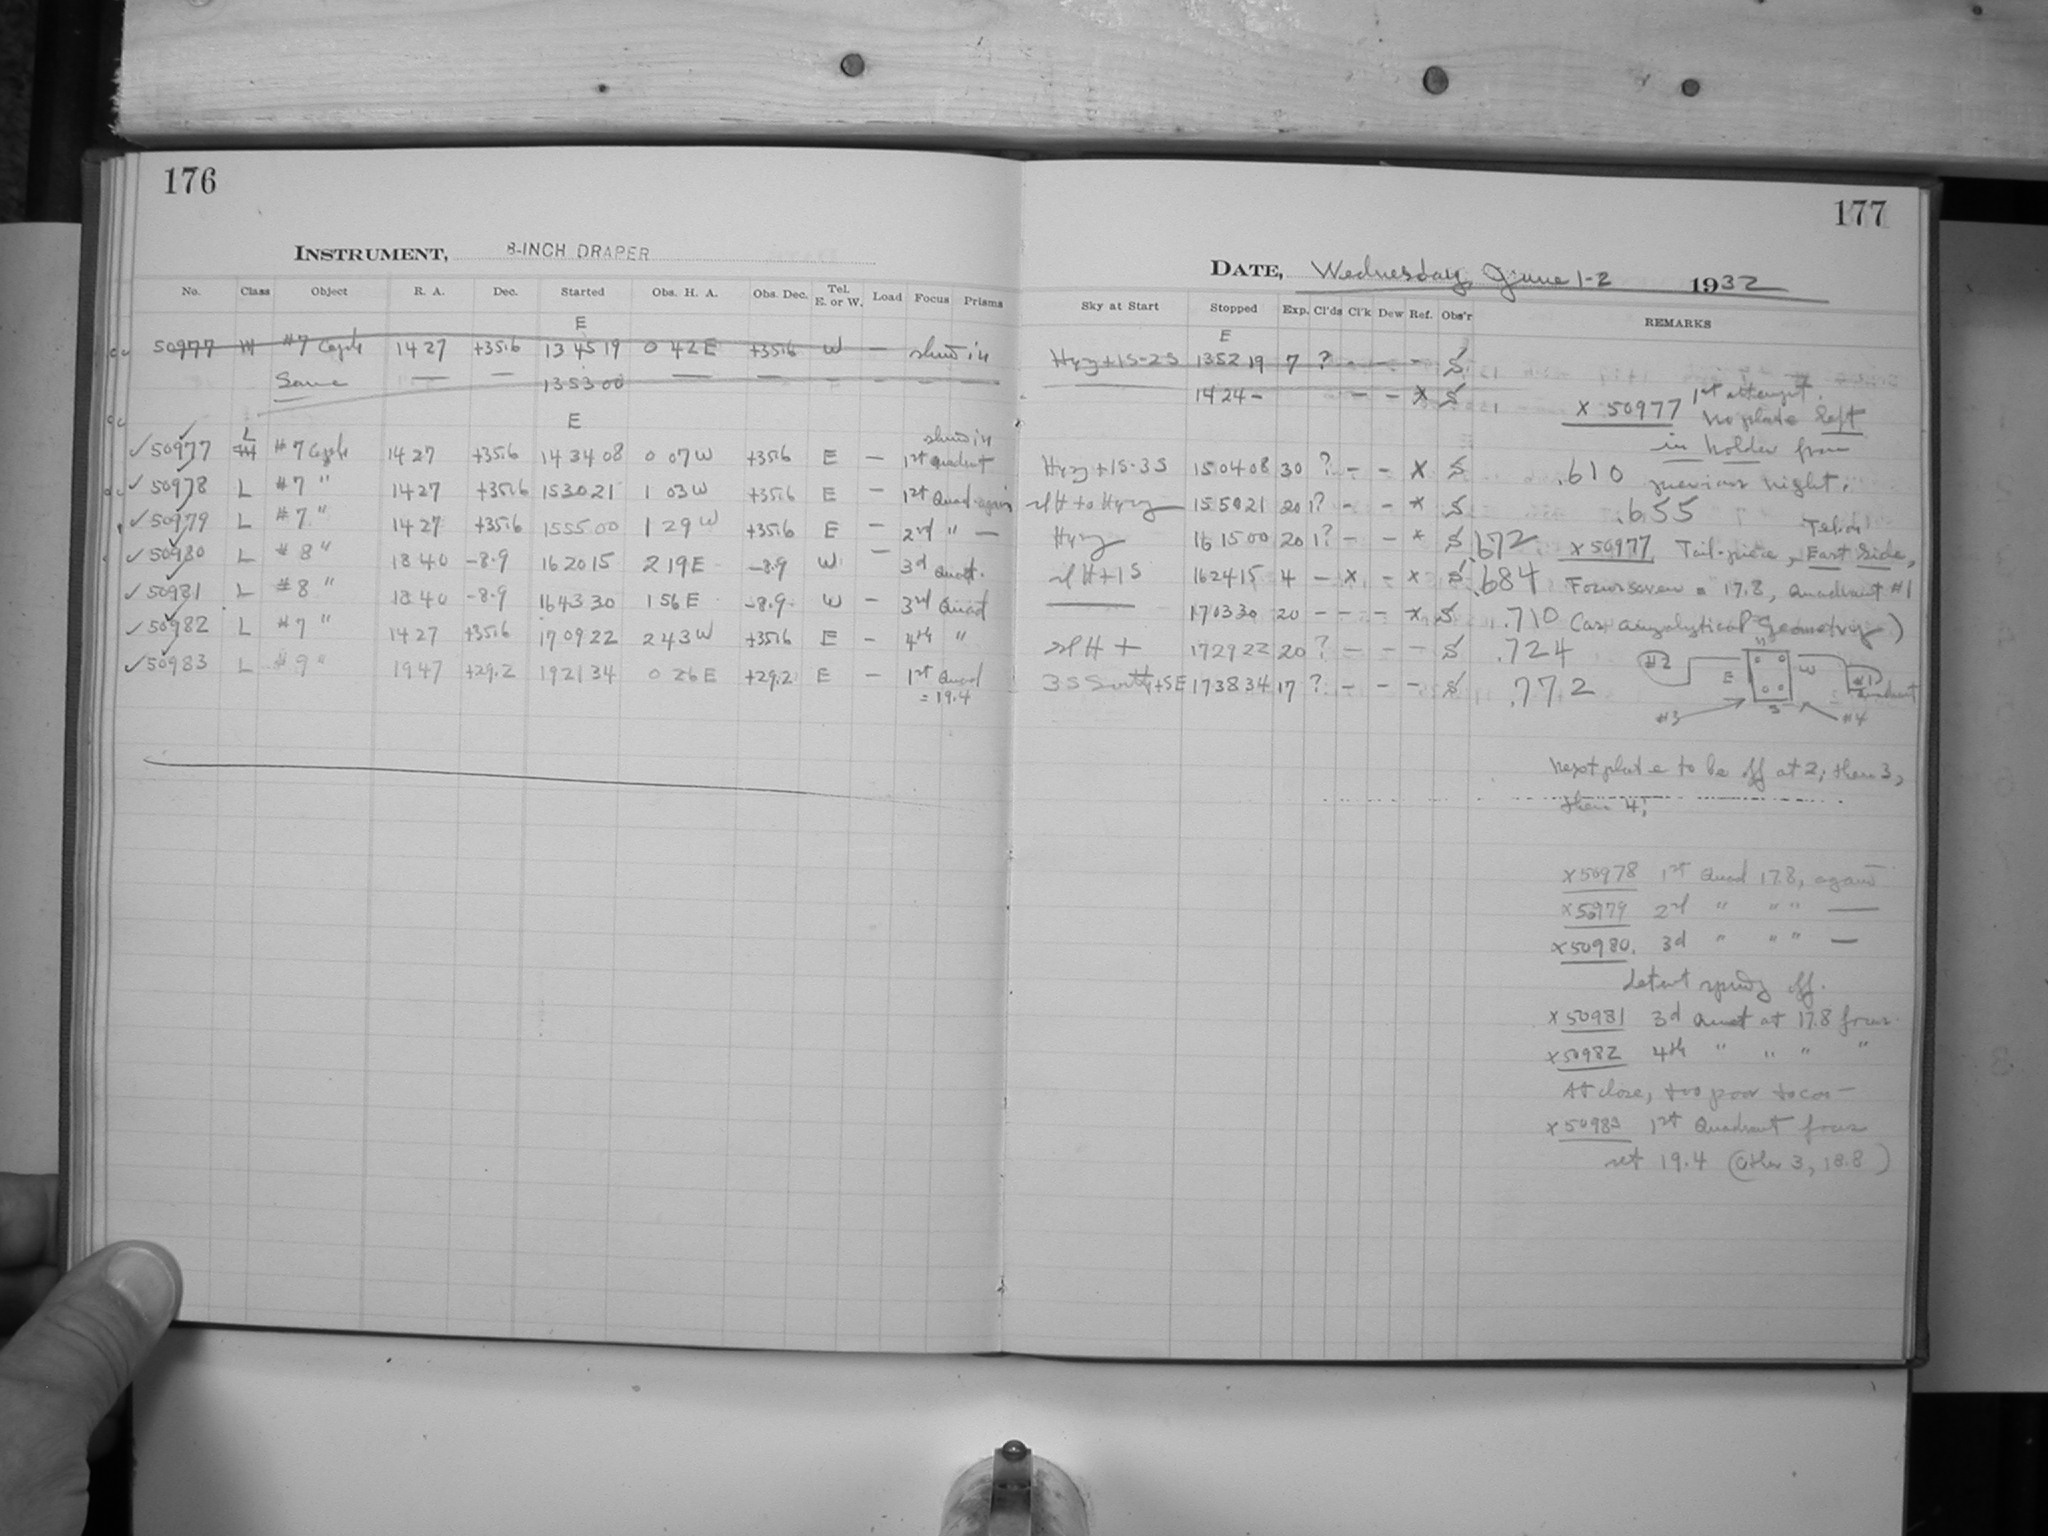 176
INSTRUMENT, 8-INCH DRAPER
No. Class Object R. A. Dec. Started Obs. H. A. Obs. Dec. Tel. E. or W. Load Focus Prisms
E
50977 #7 1427 +35.6 13 45 19 0 42 E +35.6 W —
Same — — 13 53 00 — — - - - -
E
L
✓50977 #7 1427 +35.6 14 34 08 0 07 W +35.6 E — 1st Quadrant
✓50978 L #7 " 1427 +35.6 15 30 21 1 03 W +35.6 E — 1st Quad again
✓50979 L #7 " 1427 +35.6 15 55 00 1 29 W +35.6 E — 2nd " —
✓50980 L #8 " 18 40 -8.9 16 20 15 2 19 E -8.9 W — 3d Quad.
✓50981 L #8 " 18 40 -8.9 16 43 30 1 56 E -8.9 W — 3rd Quad
✓50982 L #7 " 1427 +35.6 17 09 22 2 43 W +35.6 E — 4th "
✓50983 L #9 " 19 47 +29.2 19 21 34 0 26 E +29.2 E — 1st Quad
= 19.4
177
DATE, Wednesday, June 1-2 1932
Sky at Start Stopped Exp. Cl'ds Cl'k Dew Ref. Obs'r REMARKS
E
Hazy+1S-2S 13 52 19 7 ? - - - S
14 24 - - - X S
X 50977 1st attempt.
No plate left
in holder from
previous night.
Hazy+1S-3S 15 04 08 30 ? - - X S .610
to Hazy 15 50 21 20 1? - - X S .655
Hazy 16 15 00 20 1? - - X S .672
X 50977 Tail-piece, East Side,
+1S 16 24 15 4 - X - X S .684
= 17.8, Quadrant #1
17 03 30 20 - - - X S .710 Geometry)
17 29 22 20 ? - - - S .724
3S South+SE 17 38 34 17 ? - - - S .772
#2 E W #1 Quadrant
#3 S #4
Next plate to be off at 2; then 3,
then 4;
X50978 1st Quad 17.8, again
X50979 2d " " " —
X50980. 3d " " " —
off.
X50981 3d Quad at 17.8 focus
X50982 4th " " " "
At close, too poor to
X50983 1st Quadrant focus
set 19.4 (Other 3, 18.8)